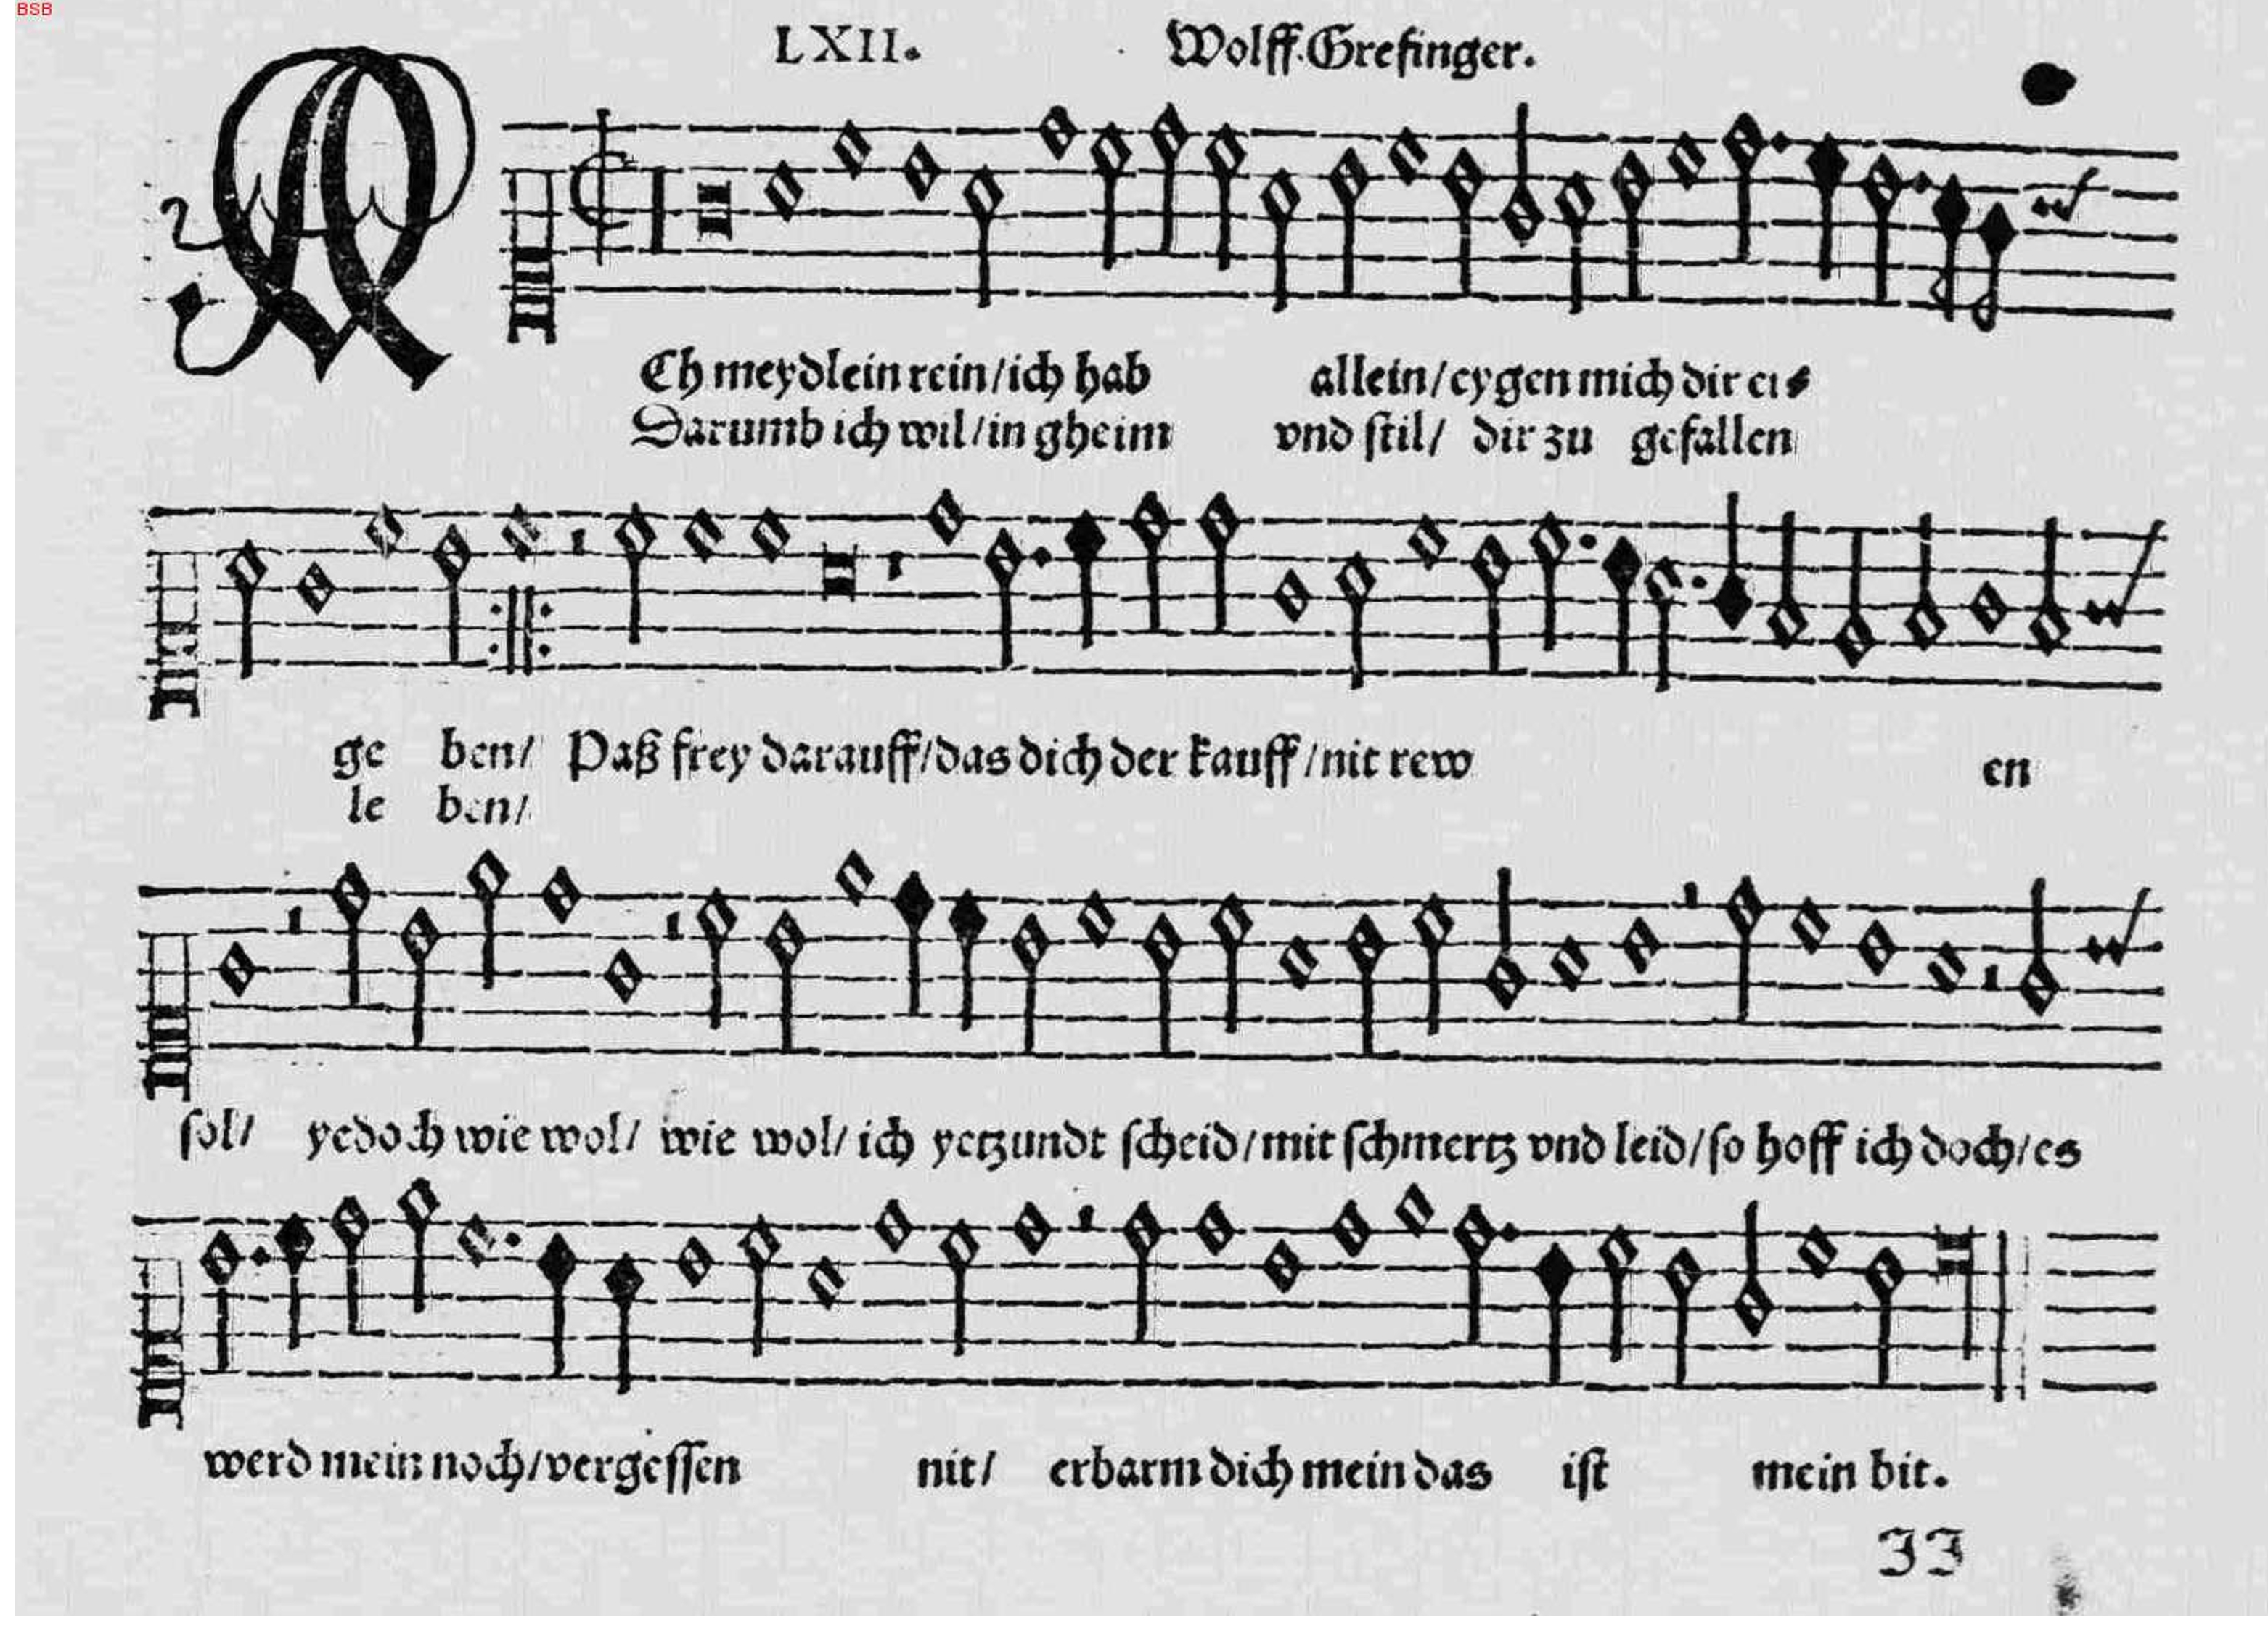 BSB
LXII. Wolff. Grefinger.
ACh meydlein rein/ich hab allein/eygen mich dir ei⸗
Darumb ich wil/in gheim vnd ſtil/ dir zu gefallen
ge ben/ Paß frey darauff/das dich der kauff/nit rew en
le ben/
ſol/ yedoch wie wol/ wie wol/ ich yetzundt ſcheid/mit ſchmertz vnd leid/ſo hoff ich doch/es
werd mein noch/vergeſſen nit/ erbarm dich mein das iſt mein bit.
JJ